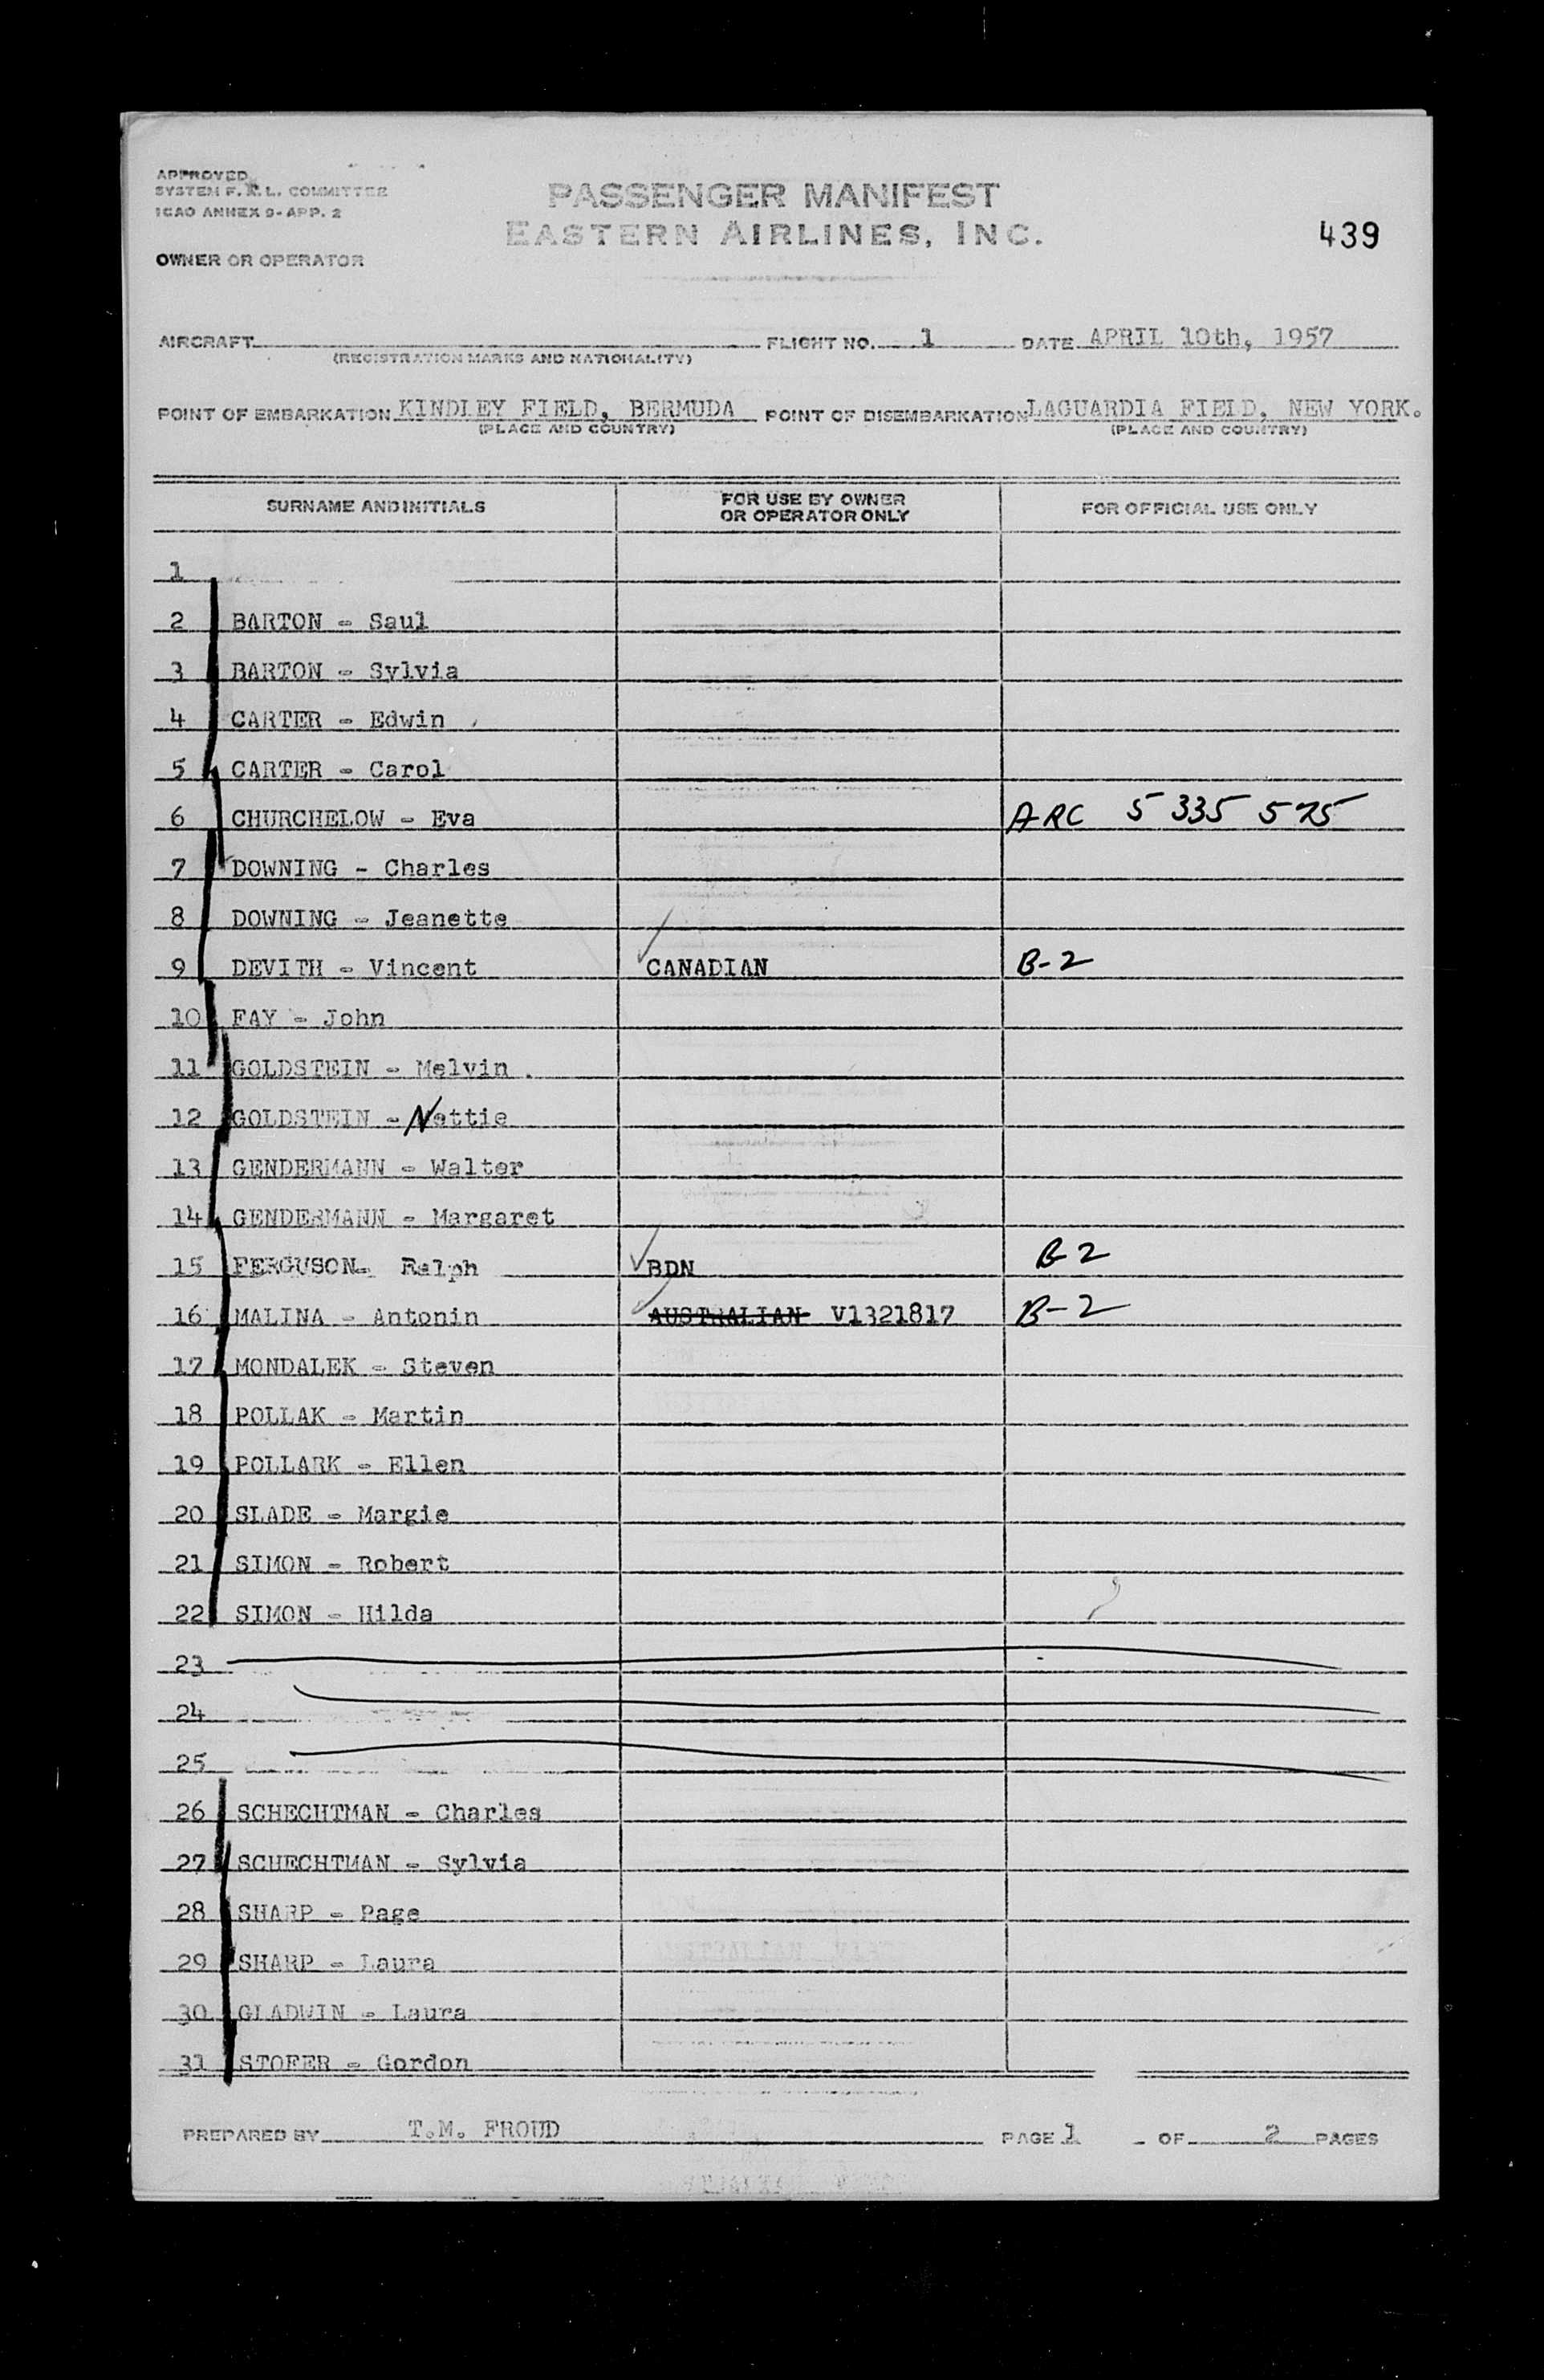 APPROVED
SYSTEM F. & L. COMMITTEE
ICAO ANNEX 9-APP. 2
PASSENGER MANIFEST
EASTERN AIRLINES, INC.
439
OWNER OR OPERATOR
AIRCRAFT FLIGHT NO. 1 DATE APRIL 10th, 1957
(REGISTRATION MARKS AND NATIONALITY)
POINT OF EMBARKATION KINDLEY FIELD, BERMUDA POINT OF DISEMBARKATION LAGUARDIA FIELD, NEW YORK.
(PLACE AND COUNTRY) (PLACE AND COUNTRY)
SURNAME AND INITIALS FOR USE BY OWNER OR OPERATOR ONLY FOR OFFICIAL USE ONLY
1
2 BARTON - Saul
3 BARTON - Sylvia
4 CARTER - Edwin
5 CARTER - Carol
6 CHURCHELOW - Eva ARC 5 335 575
7 DOWNING - Charles
8 DOWNING - Jeanette
9 DEVITH - Vincent CANADIAN B-2
10 FAY - John
11 GOLDSTEIN - Melvin .
12 GOLDSTEIN - Nettie
13 GENDERMANN - Walter
14 GENDERMANN - Margaret
15 FERGUSON- Ralph BDN B-2
16 MALINA - Antonin AUSTRALIAN V1321817 B-2
17 MONDALEK - Steven
18 POLLAK - Martin
19 POLLARK - Ellen
20 SLADE - Margie
21 SIMON - Robert
22 SIMON - Hilda
23
24
25
26 SCHECHTMAN - Charles
27 SCHECHTMAN - Sylvia
28 SHARP - Page
29 SHARP - Laura
30 GLADWIN - Laura
31 STOFER - Gordon
PREPARED BY T.M. FROUD PAGE 1 OF 2 PAGES